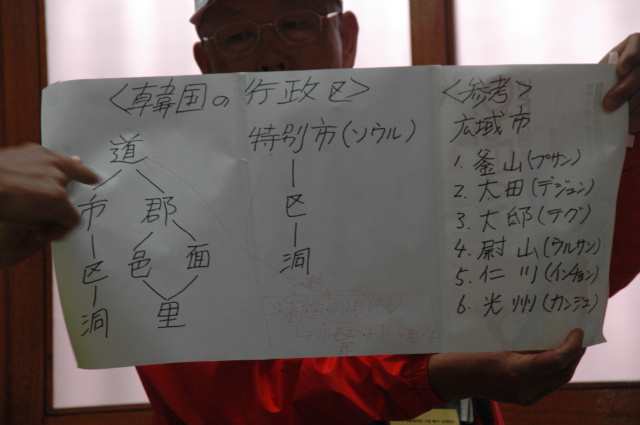 <韓国の行政区>
道
市 郡
区 邑 面
洞 里
特別市(ソウル)
区
洞
<参考>
広域市
1. 釜山(プサン)
2. 大田(デジョン)
3. 大邸(テグ)
4. 尉山(ウルサン)
5. 仁川(インチョン)
6. 光州(カンジュ)